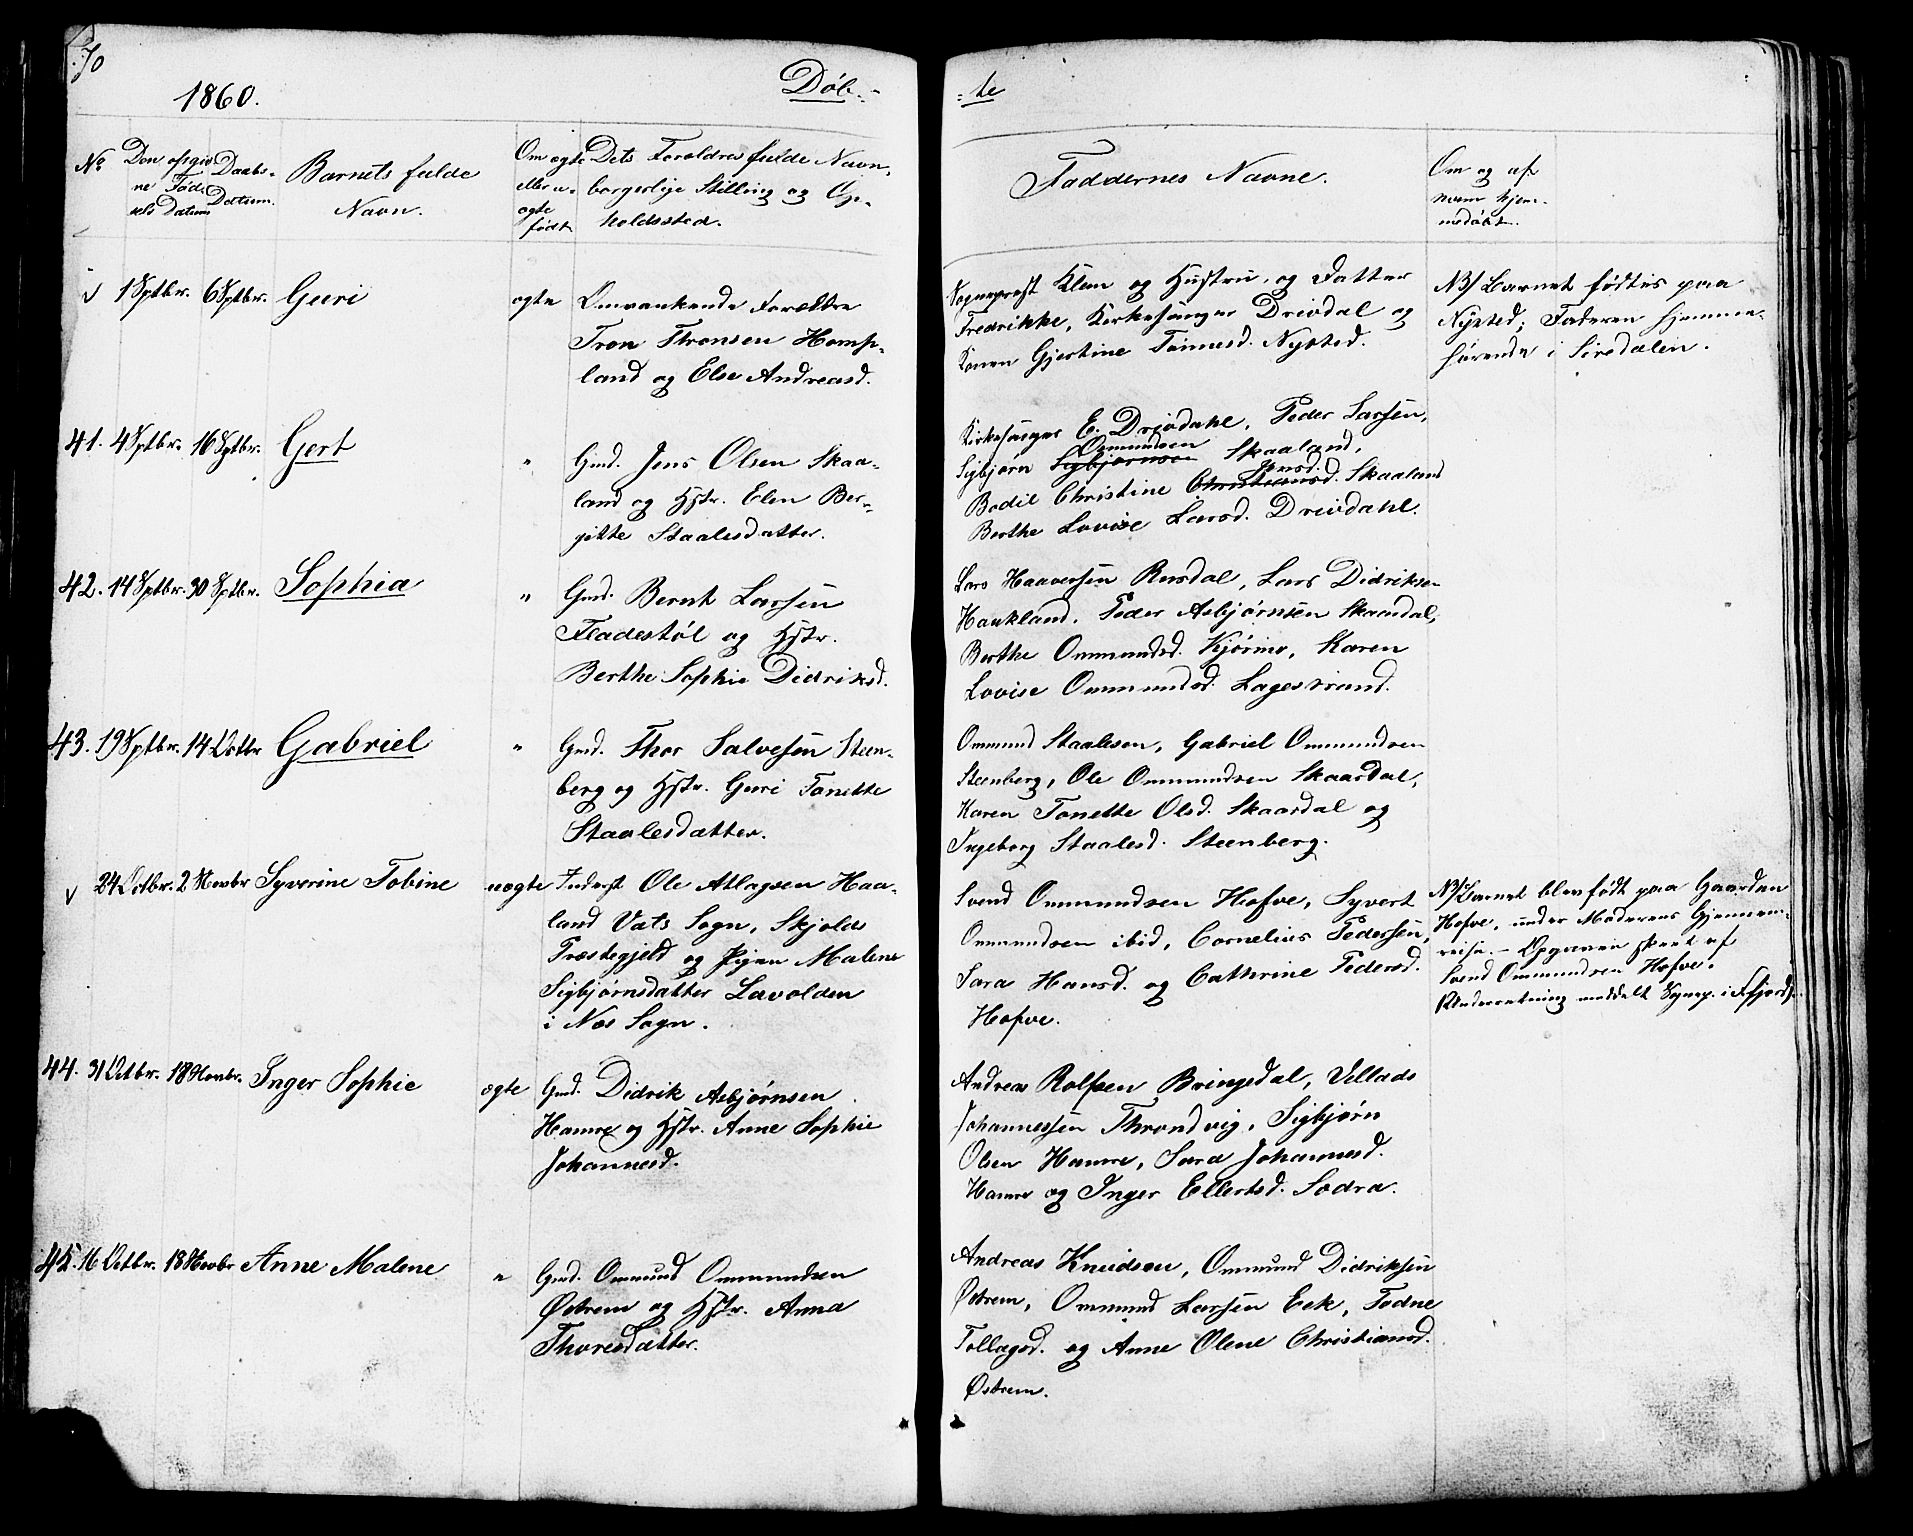 70
1860.
Døb-
-te
No
Den opgiv
ne Fød-
sels Datum
Daabs-
Datum.
Barnets fulde
Navn.
Om ægte
eller u-
ægte
født
Dets Forældres fulde Navn,
borgerlige Stilling og Op-
holdssted.
Faddernes Navne.
Om og af
hvem hjem-
medøbt.
1 Sptbr. 6 Sptbr. Guri ægte Omvankende Forældre
Tron Thronsen Homp-
land og Else Andreasd.
Sognepræst Klem og Hustru, og Datter
Fredrikke, Kirkesanger Dreodal og
Konen Gjertine Tønnesd. Nysted.
NB/ Barnet fødtes paa
Nysted; Faderen hjemme-
hørende i Siredalen.
41. 4 Sptbr. 16 Sptbr. Gert " Gmd. Jens Olsen Skaa-
land og Hstr. Elen Ber-
gitte Staalesdatter.
Kirkesanger E. Dreodahl, Peder Larsen,
Ommundsen
Sigbjørn Sigbjørnsen Skaaland,
Jensd.
Bodil Christine Christensd. Skaaland
Berthe Lovise Larsd. Dreodahl.
42. 14 Sptbr. 30 Sptbr. Sophia " Gmd. Bernt Larsen
Fladestøl og Hstr.
Berthe Sophie Didriksd.
Lars Haaversen Rusdal, Lars Didriksen
Haukland, Peder Asbjørnsen Skaardal,
Berthe Ommundsd. Kjørmo, Karen
Lovise Ommundsd. Lagestrand.
43. 19 Sptbr. 14 Octbr Gabriel " Gmd. Thor Salvesen Steen-
berg og Hstr. Guri Tonette
Staalesdatter.
Ommund Staalesen, Gabriel Ommundsen
Steenberg, Ole Ommundsen Skaardal,
Karen Tonette Olsd. Skaardal og
Ingeborg Staalesd. Steenberg.
24 Octbr. 2 Novbr Syverine Tobine uægte Inderst Ole Atlagsen Haa-
land Vats Sogn, Skjolds
Præstegjeld og Pigen Malene
Sigbjørnsdatter Lavolden
i Næs Sogn.
Svend Ommundsen Hofve, Syvert
Ommundsen ibid, Cornelius Pedersen,
Sara Hansd. og Cathrine Pedersd.
Hofve.
NB/ Barnet blev født paa Gaarden
Hofve, under Moderens Gjennem-
reise. - Opgaven skeet af
Svend Ommundsen Hofve.
Underretning meddelt Sognep. i
44. 31 Octbr. 18 Novbr. Inger Sophie ægte Gmd. Didrik Asbjørnsen
Hamre og Hstr. Anne Sophie
Johannesd.
Andreas Rolfsen Bringedal, Vellads
Johannessen Throndvig, Sigbjørn
Olsen Hamre, Sara Johannesd.
Hamre og Inger Ellertsd. Sodra.
45. 16 Octbr. 18 Novbr Anne Malene " Gmd. Ommund Ommundsen
Østrem og Hstr. Anna
Thoresdatter.
Andreas Knudsen, Ommund Didriksen
Østrem, Ommund Larsen Eek, Todne
Tollagsd. og Anne Olene Christiansd.
Østrem.